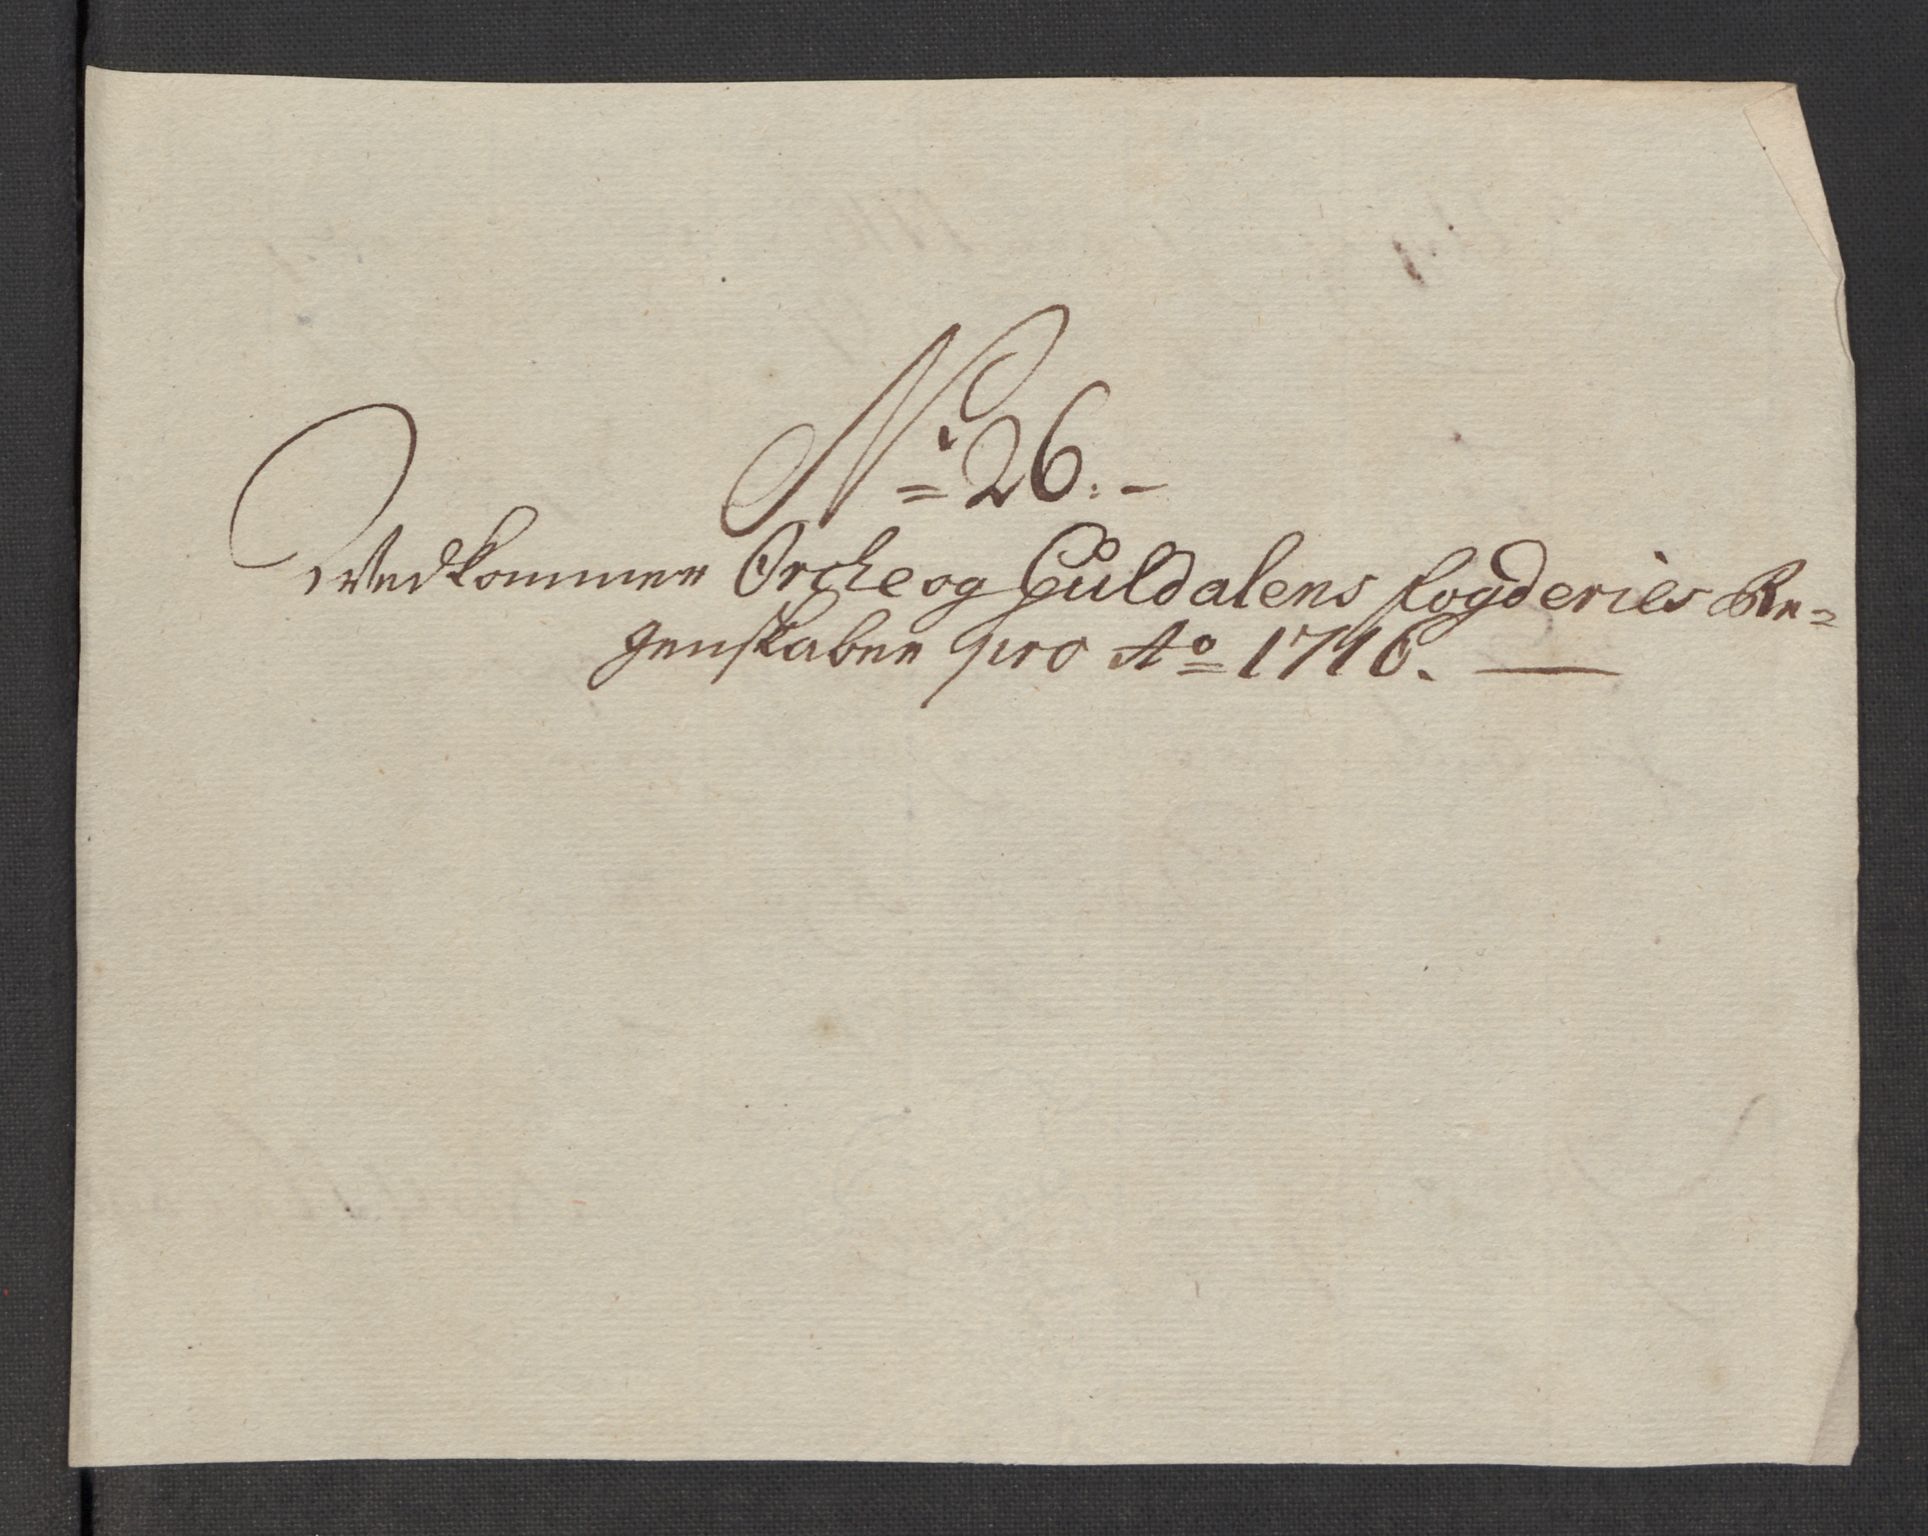 No 26.
Vedkommer Orche og Guldalens fogderies Re=
genskaber pro Ao 1716.